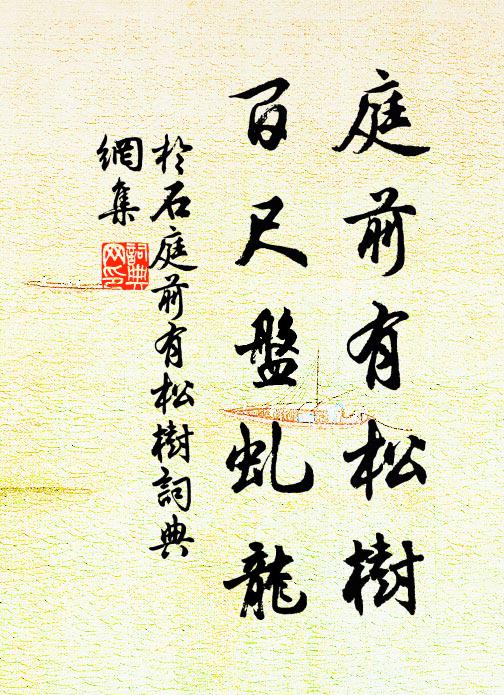 庭前有松樹
百尺盤虬龍
於石庭前有松樹詞典
網集
詞典
网印